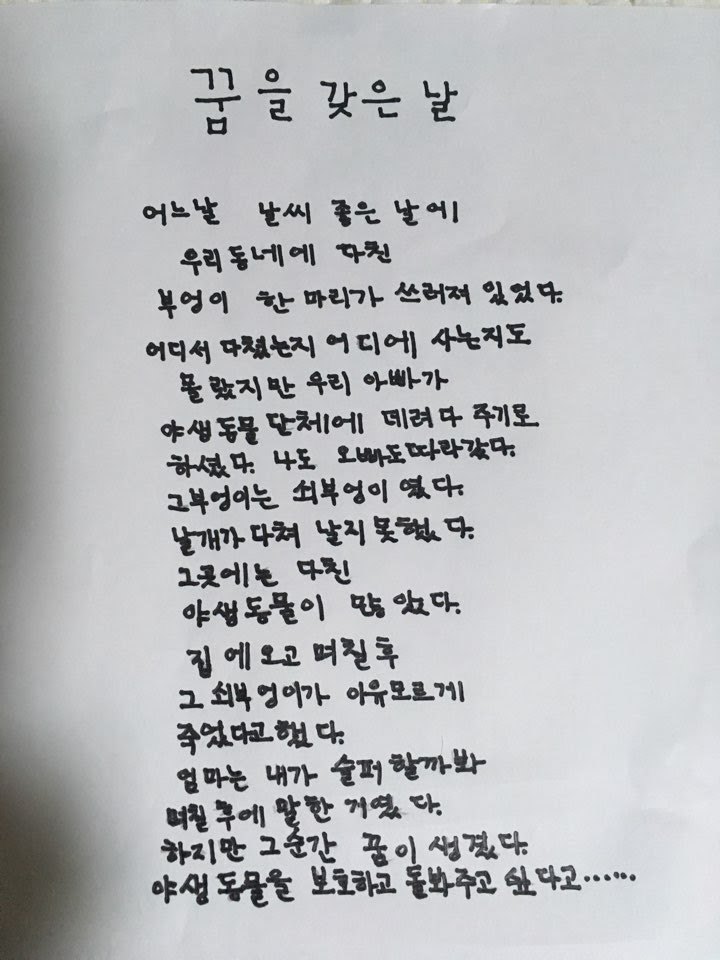 꿈을 갖은 날
어느날 날씨 좋은 날에
우리동네에 다친
부엉이 한 마리가 쓰러져 있었다.
어디서 다쳤는지 어디에 사는지도
몰랐지만 우리 아빠가
야생동물 단체에 데려다 주기로
하셨다. 나도 오빠도따라갔다.
그부엉이는 쇠부엉이 였다.
날개가 다쳐 날지 못했다.
그곳에는 다친
야생동물이 많았다.
집에오고 며칠 후
그 쇠부엉이가 이유모르게
죽었다고했다.
엄마는 내가 슬퍼할까봐
며칠 후에 말한 거였다.
하지만 그순간 꿈이 생겼다.
야생동물을 보호하고 돌봐주고 싶다고......